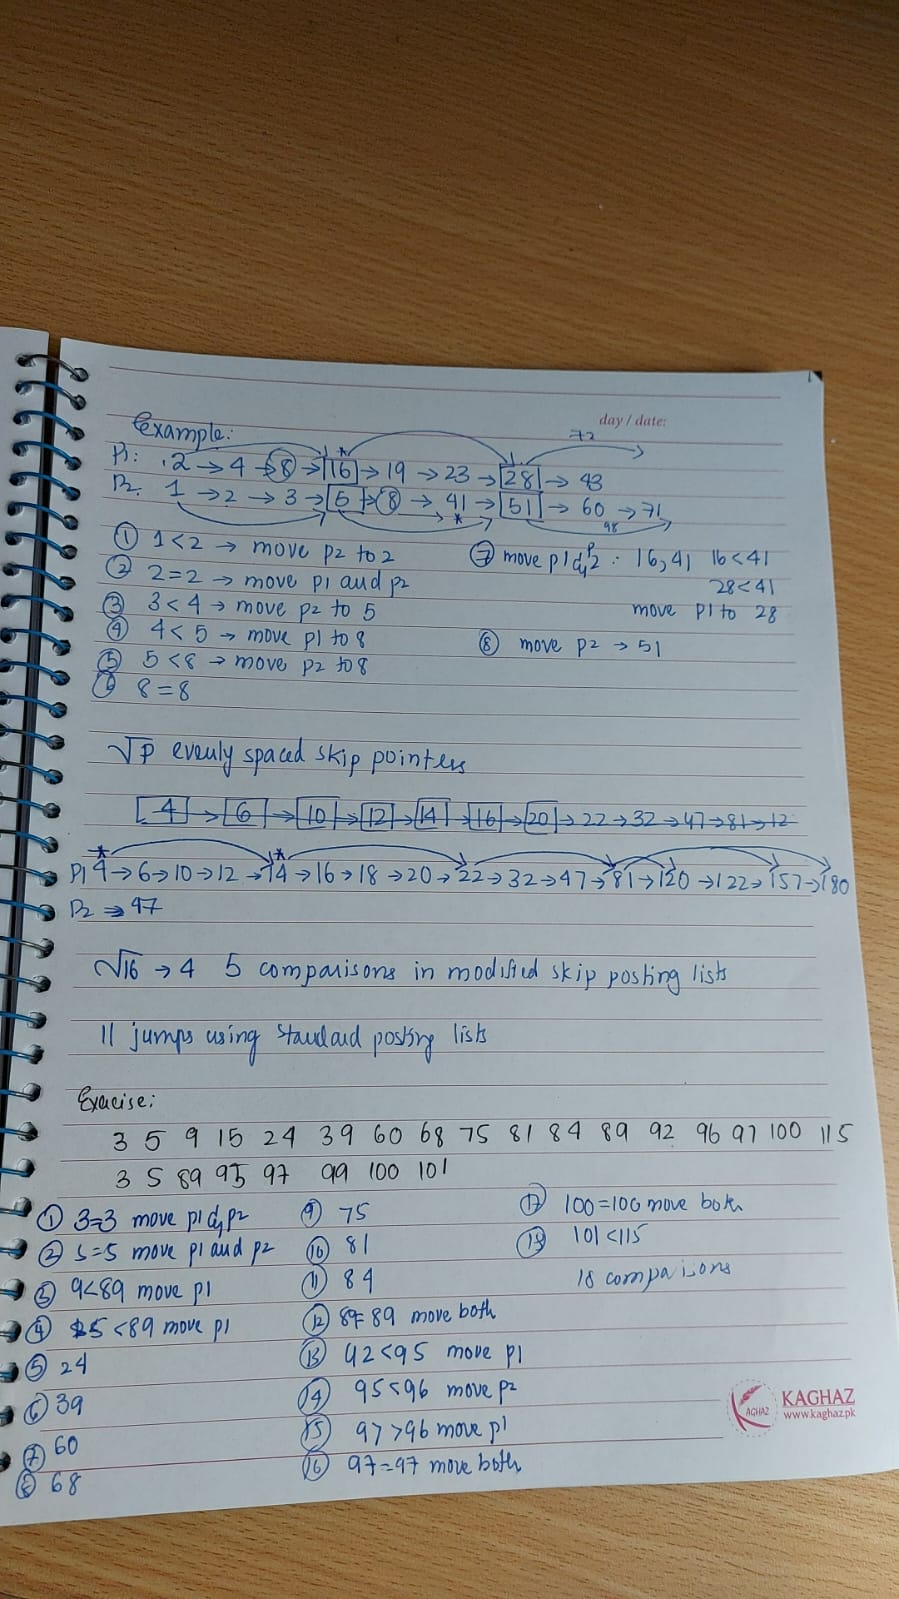 day / date:
Example:
72
P1: 2 → 4 → 8 → 16 → 19 → 23 → 28 → 43
P2. 1 → 2 → 3 → 5 → 8 → 41 → 51 → 60 → 71
98
① 1 < 2 → move p2 to 2
② 2 = 2 → move p1 and p2
③ 3 < 4 → move p2 to 5
④ 4 < 5 → move p1 to 8
⑤ 5 < 8 → move p2 to 8
⑥ 8 = 8
⑦ move p1 & p2 : 16, 41 16 < 41
28 < 41
move p1 to 28
⑧ move p2 → 51
√P evenly spaced skip pointers
4 → 6 → 10 → 12 → 14 → 16 → 20 → 22 → 32 → 47 → 81 → 12
P1 4 → 6 → 10 → 12 → 14 → 16 → 18 → 20 → 22 → 32 → 47 → 81 → 120 → 122 → 157 → 180
P2 → 47
√16 → 4 5 comparisons in modified skip posting lists
11 jumps using standard posting lists
Exercise:
3 5 9 15 24 39 60 68 75 81 84 89 92 96 97 100 115
3 5 89 95 97 99 100 101
① 3=3 move p1 & p2
② 5=5 move p1 and p2
③ 9<89 move p1
④ 15 <89 move p1
⑤ 24
⑥ 39
⑦ 60
⑧ 68
⑨ 75
⑩ 81
⑪ 84
⑫ 89=89 move both
⑬ 92<95 move p1
⑭ 95<96 move p2
⑮ 97>96 move p1
⑯ 97=97 move both
⑰ 100=100 move both
⑱ 101<115
18 comparisons
KAGHAZ
www.kaghaz.pk